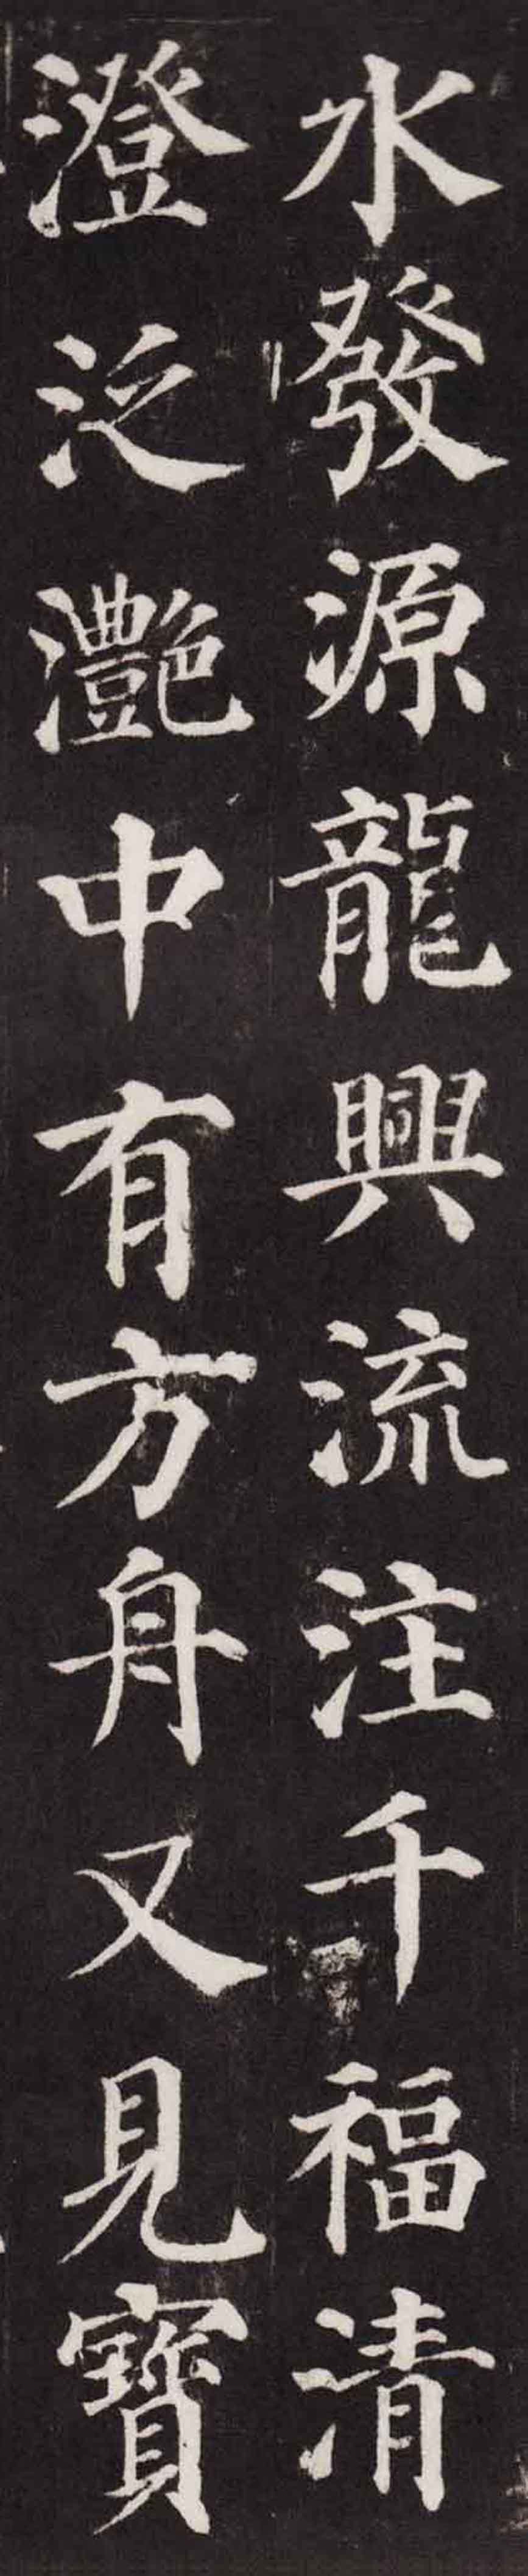 水發源龍興流注千福清
澄泛灩中有方舟又見寶